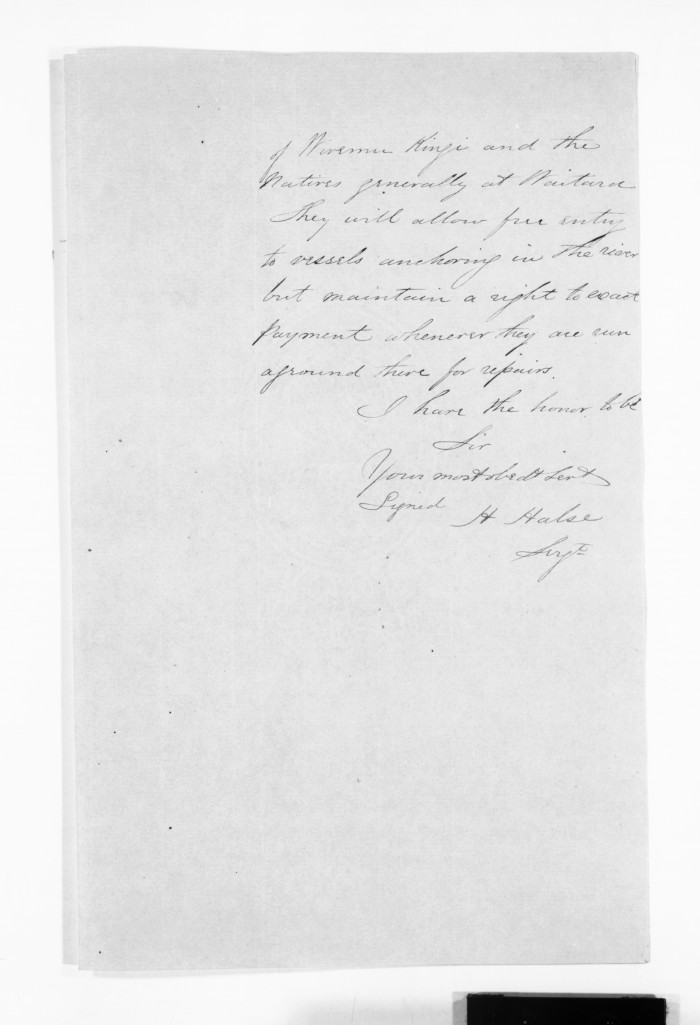 of Wiremu Kingi and the
Natives generally at Waitara
They will allow free entry
to vessels anchoring in the river
but maintain a right to exact
payment whenever they are run
aground there for repairs.
I have the honor to be
Sir
Your most obedt Sert
Signed H Halse
Sergt